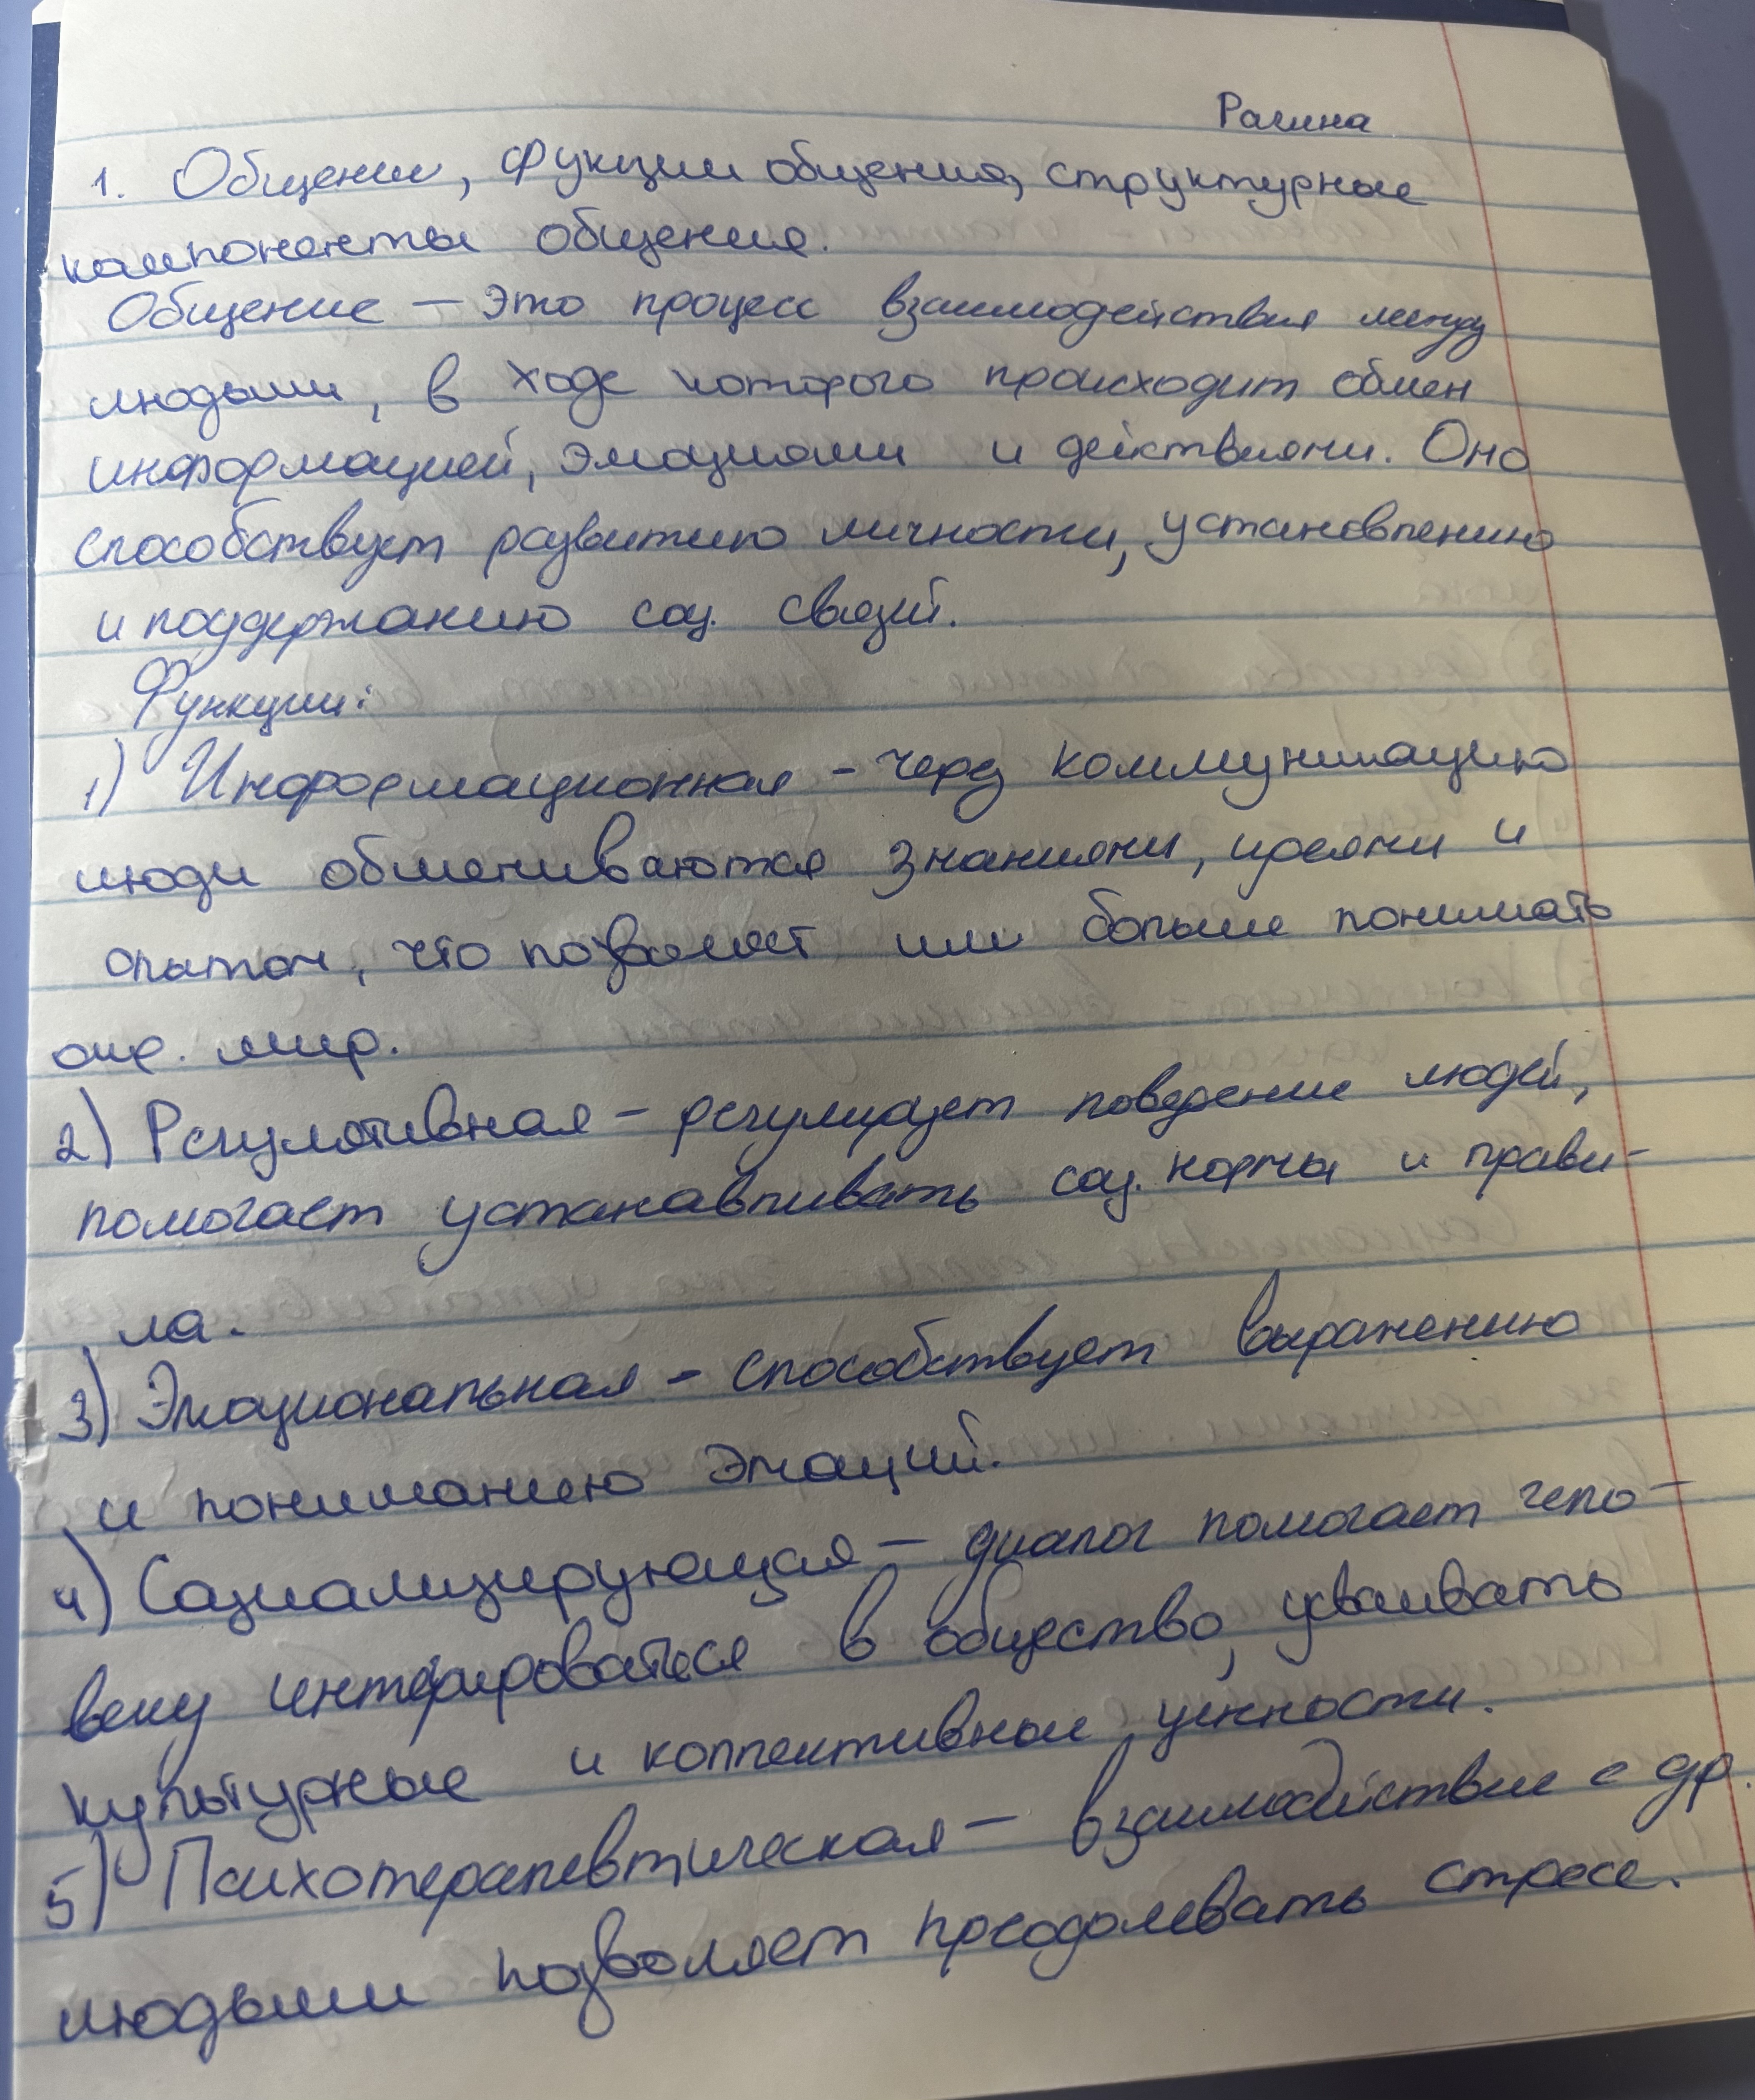 Рагина
1. Общение, функции общения, структурные
компоненты общения.
Общение — это процесс взаимодействия между
людьми, в ходе которого происходит обмен
информацией, эмоциями и действиями. Оно
способствует развитию личности, установлению
и поддержанию соц. связей.
Функции:
1) Информационная - через коммуникацию
люди обмениваются знаниями, идеями и
опытом, что позволяет им больше понимать
окр. мир.
2) Регулятивная - регулирует поведение людей,
помогает устанавливать соц. нормы и прави-
ла.
3) Эмоциональная - способствует выражению
и пониманию эмоций.
4) Социализирующая - диалог помогает чело-
веку интегрироваться в общество, усваивать
культурные и коллективные ценности.
5) Психотерапевтическая - взаимодействие с др.
людьми позволяет преодолевать стресс.